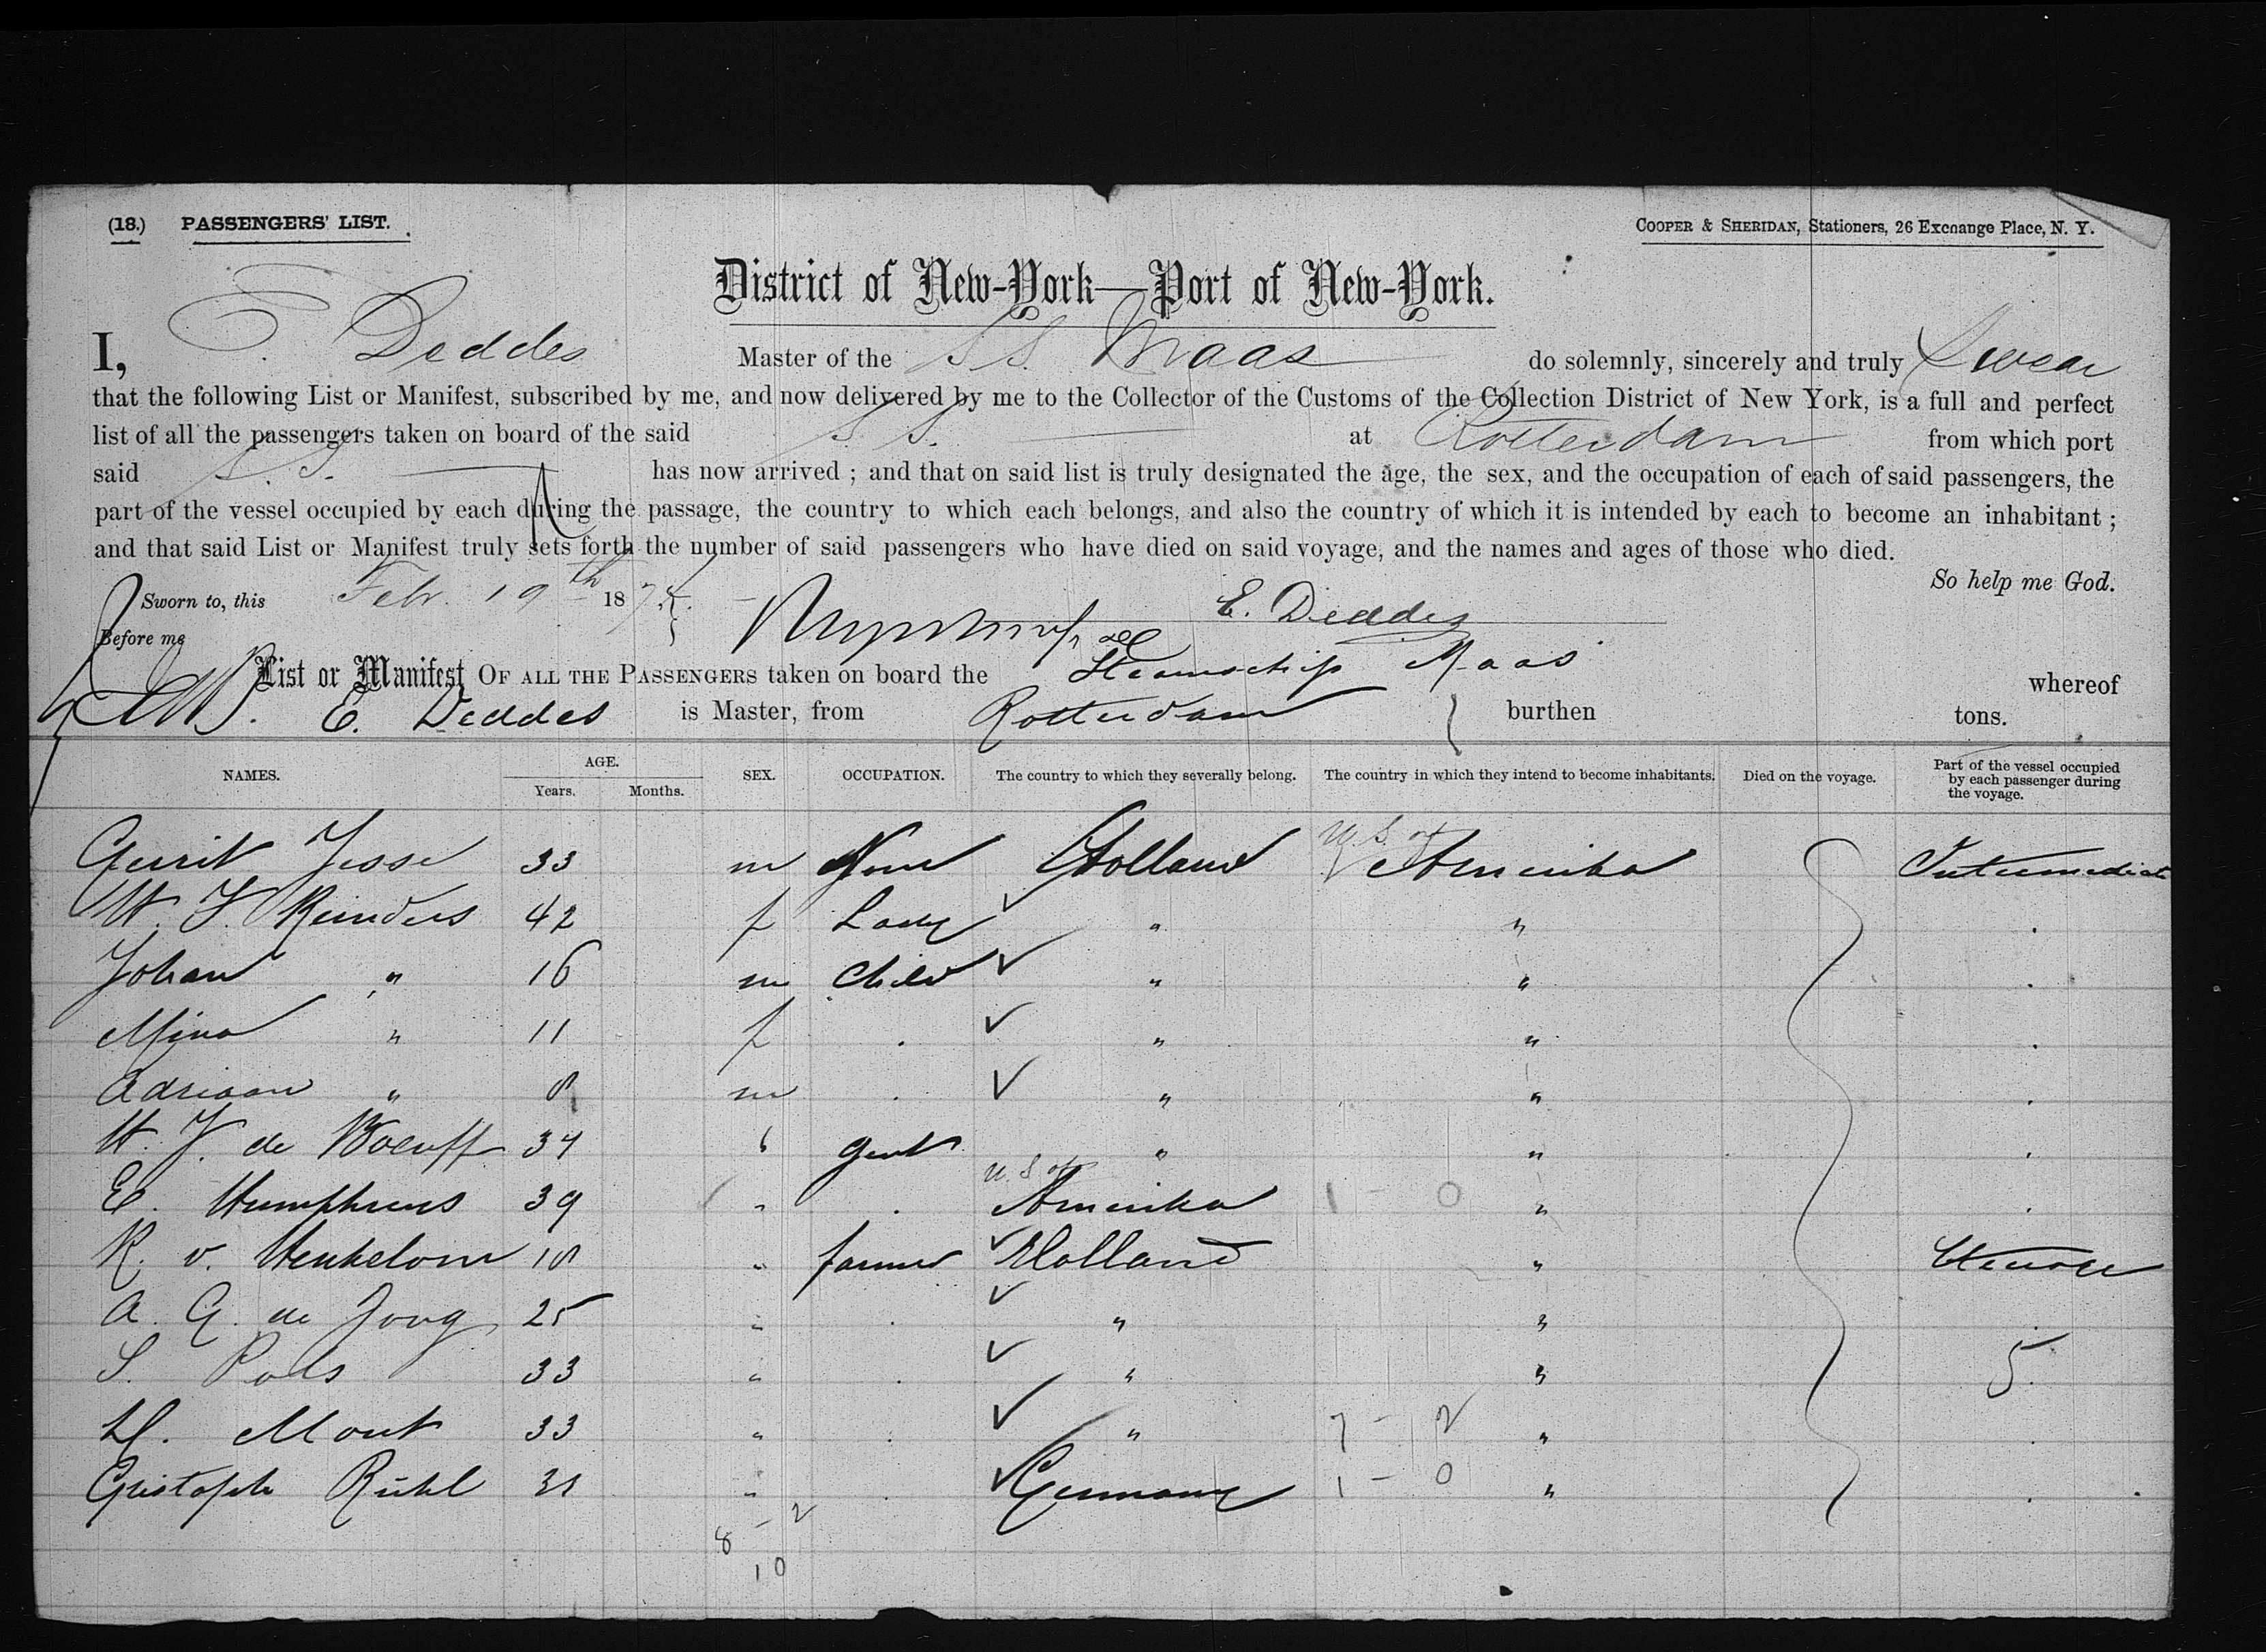 (18.) PASSENGERS' LIST. COOPER & SHERIDAN, Stationers, 26 Exchange Place, N. Y.
District of New-York—Port of New-York.
I, E. Deddes Master of the S.S. Maas do solemnly, sincerely and truly Swear
that the following List or Manifest, subscribed by me, and now delivered by me to the Collector of the Customs of the Collection District of New York, is a full and perfect
list of all the passengers taken on board of the said S. S. at Rotterdam from which port
said S. S. has now arrived ; and that on said list is truly designated the age, the sex, and the occupation of each of said passengers, the
part of the vessel occupied by each during the passage, the country to which each belongs, and also the country of which it is intended by each to become an inhabitant ;
and that said List or Manifest truly sets forth the number of said passengers who have died on said voyage, and the names and ages of those who died.
So help me God.
Sworn to, this Febr. 19th 187
E. Deddes
Before me
List or Manifest OF ALL THE PASSENGERS taken on board the Steamschip Maas whereof
E. Deddes is Master, from Rotterdam burthen tons.
NAMES. AGE. Years. Months. SEX. OCCUPATION. The country to which they severally belong. The country in which they intend to become inhabitants. Died on the voyage. Part of the vessel occupied by each passenger during the voyage.
Gerrit Jesse 33 m None Holland U.S. of Amerika Intermediate
Reinders 42 f Lady " " .
Johan " 16 m Child " " .
Mina " 11 f . " " .
Adriaan " 8 m . " " .
de Boeuff 34 " gent " " .
E. Humphreus 39 " . U.S. of Amerika 1 - 0 " .
K. v. Heukelom 18 " farmer Holland "
A. G. de Jong 25 " . " " .
S. Pods 33 " . " " 5.
Mout 33 " . " 7 - 2 " .
Gristoph Rühl 31 " . Germany 1 - 0 " .
8 - 2
10